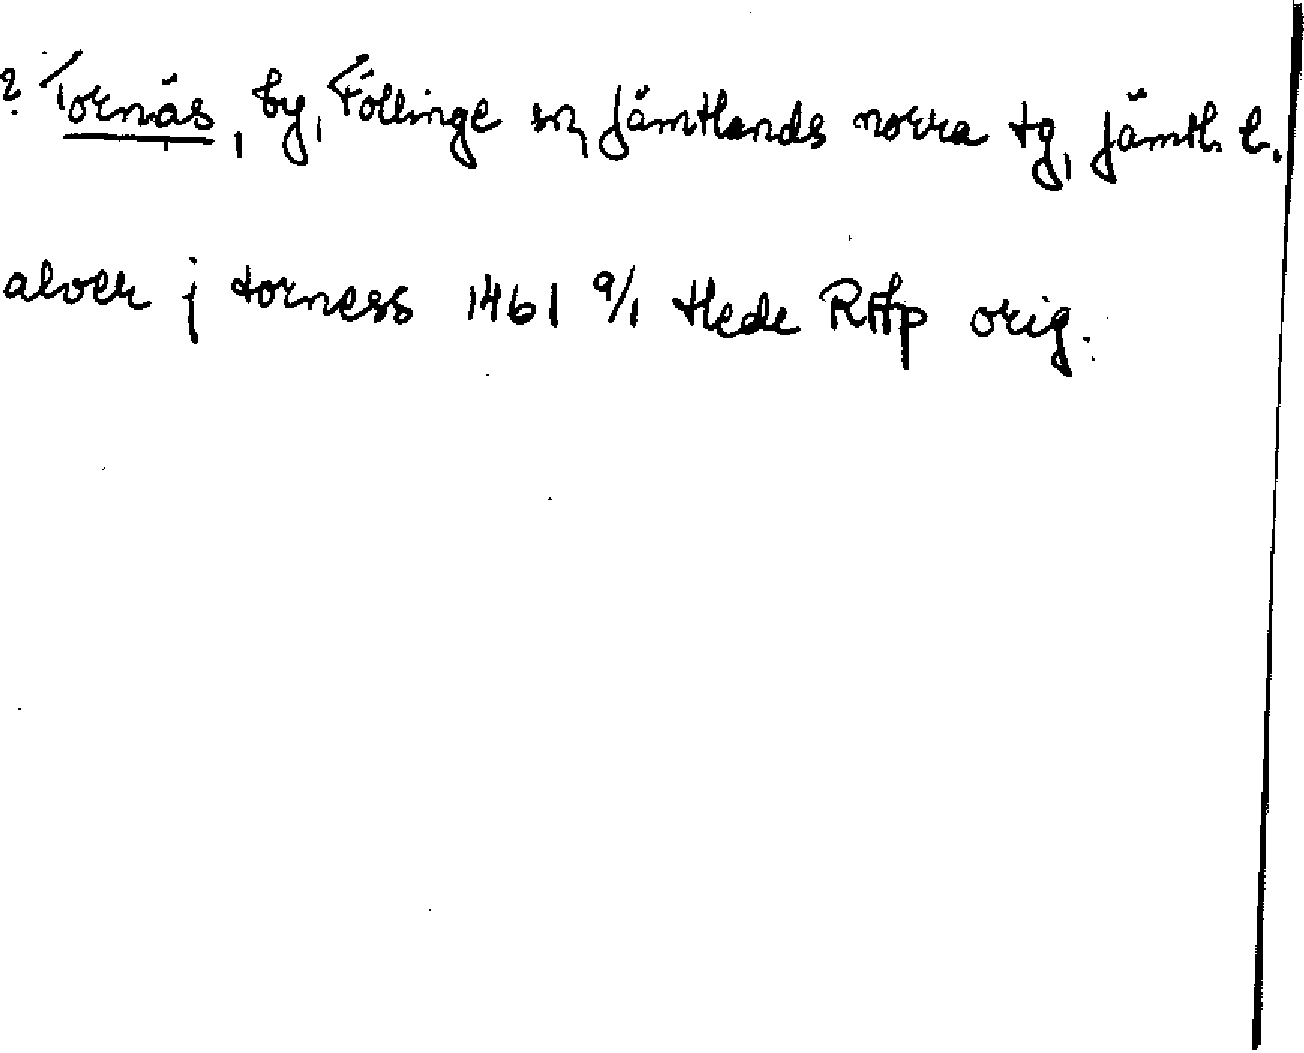 ? Tornäs, by, Föllinge sn, Jämtlands norra tg, Jämtl. l.
alver j torness 1461 9/1 Hede RAp orig.